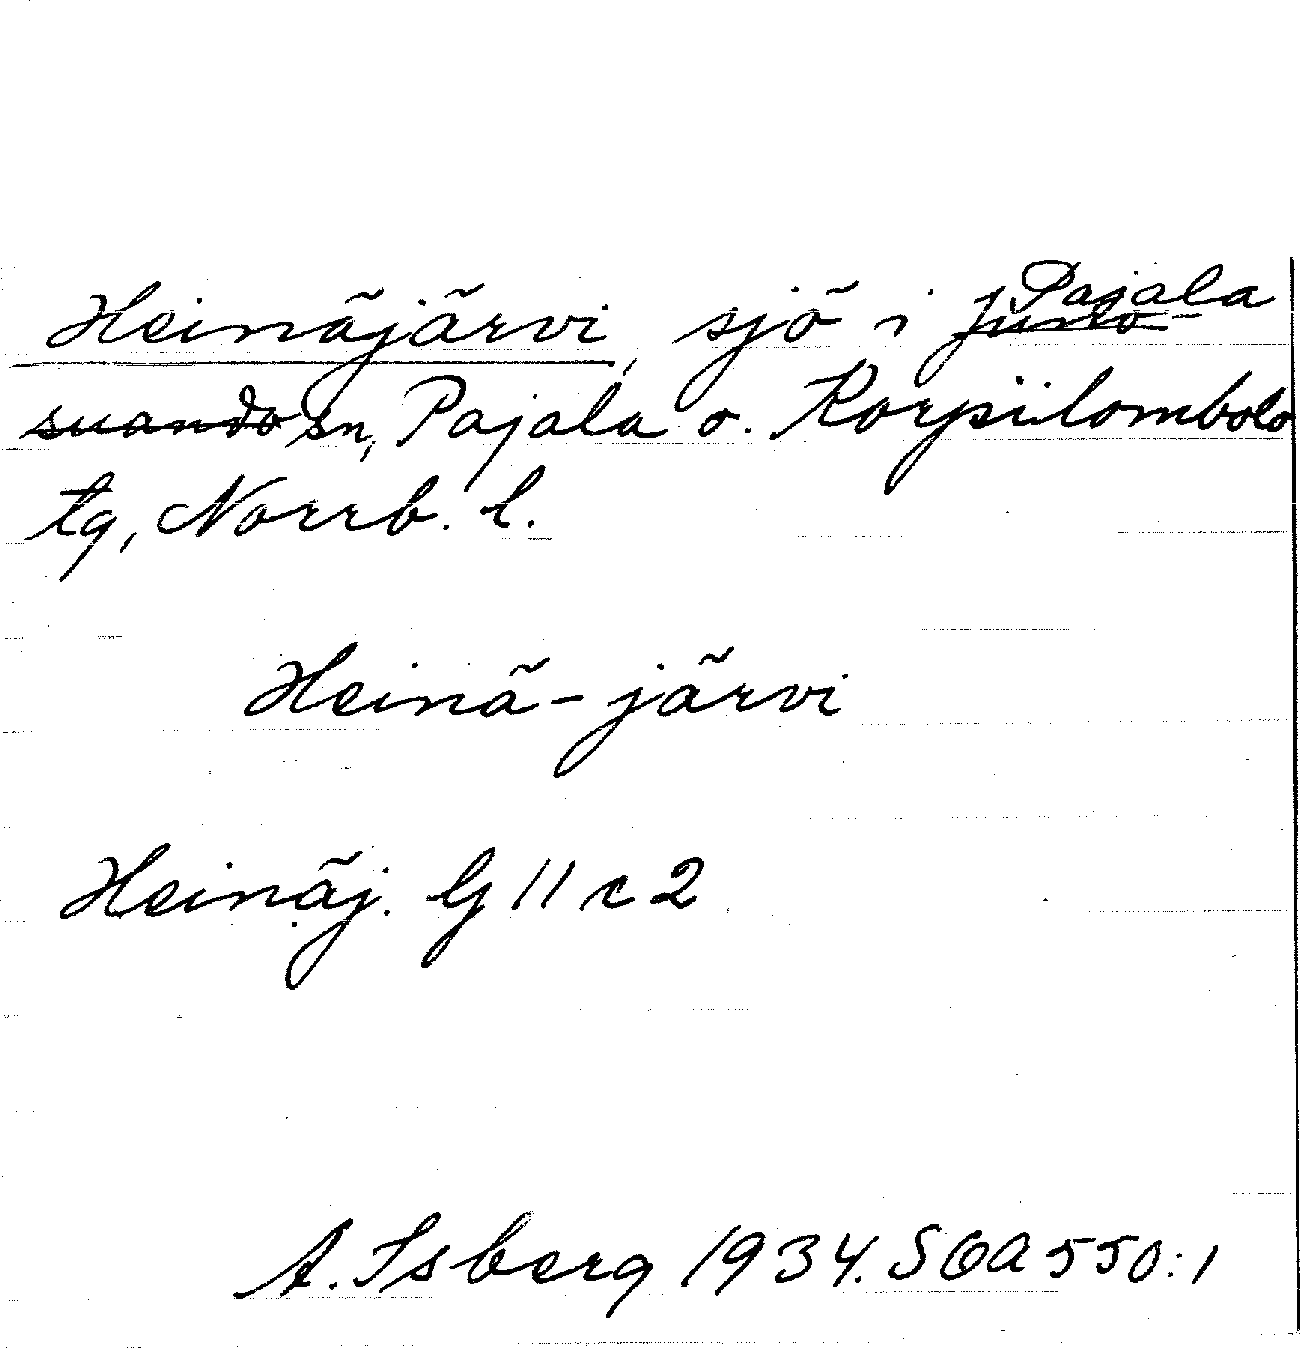 Heinäjärvi, sjö i Pajala
Juno-
suando sn, Pajala o. Korpilombolo
tg, Norrb. l.
Heinä-järvi
Heinäj. G 11 c 2
A. Isberg 1934. SOA 550:1